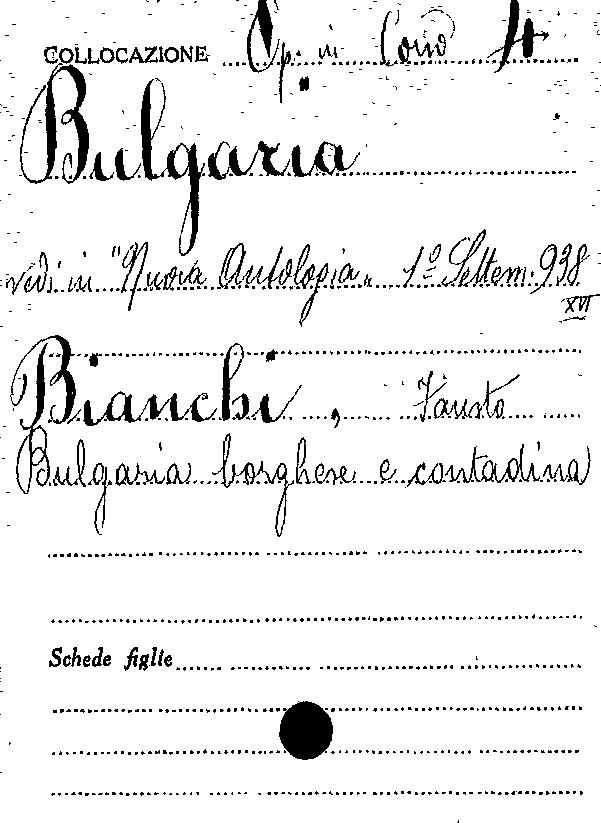 COLLOCAZIONE Op. in Corso 4
Bulgaria
vedi in "Nuova Antologia" 1º Settem. 938
XVI
Bianchi, Fausto
Bulgaria borghese e contadina
Schede figlie